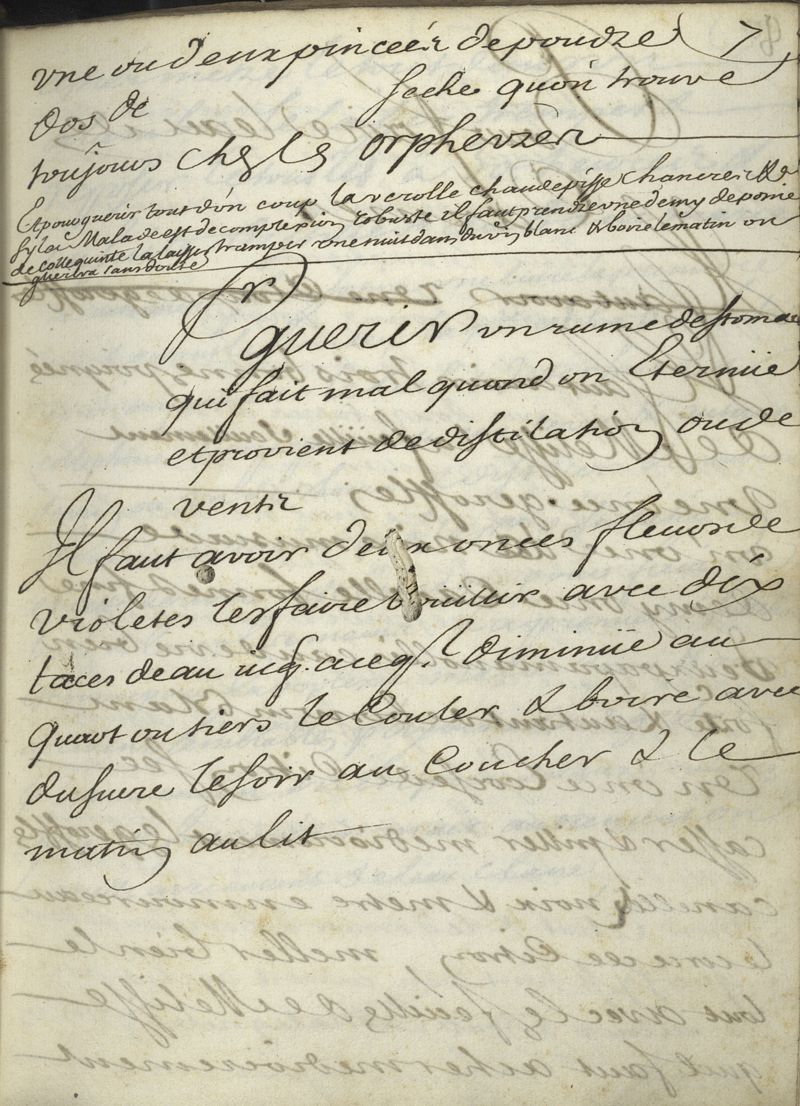 7
vne ou deux pinceés de poudre
dos de seche quon trouve
toujours ches les orphevres
Et pour guerir tout dun coup la verolle chaudepisse chancres &c
sy le Malade est de complexion robuste il faut prendre vne demy de pome
de collequinte la laisser tramper vne nuit dans du vin blanc & boire le matin on
guerira sans doute
Pr
guerir un rume destomac
qui fait mal quand on Eternüe
et provient de distilation ou de
ventz
Il faut avoir deux onces fleurs de
violetes les faire boüillir avec dix
taces deau jusq. a ce q. diminüe au
quart ou tiers le Couler & boire avec
du sucre le soir au Coucher & le
matin au lit